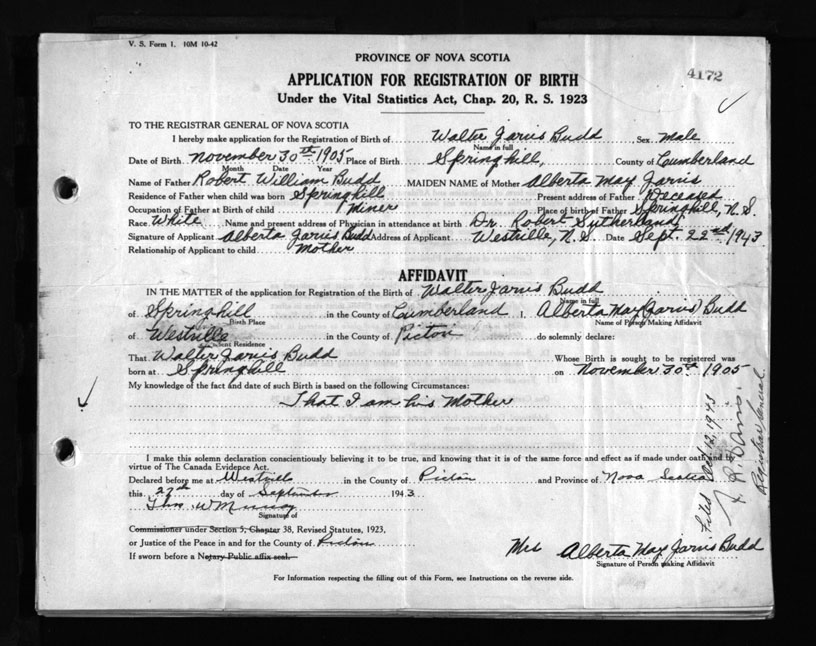 V. S. Form 1. 10M 10-42
PROVINCE OF NOVA SCOTIA
4172
APPLICATION FOR REGISTRATION OF BIRTH
Under the Vital Statistics Act, Chap. 20, R. S. 1923
TO THE REGISTRAR GENERAL OF NOVA SCOTIA
I hereby make application for the Registration of Birth of Walter Jarvis Budd Sex Male
Name in full
Date of Birth November 30th 1905 Place of Birth Springhill, County of Cumberland
Month Date Year
Name of Father Robert William Budd MAIDEN NAME of Mother Alberta May Jarvis
Residence of Father when child was born Springhill Present address of Father Deceased
Occupation of Father at Birth of child Miner Place of birth of Father Springhill, N.S.
Race White Name and present address of Physician in attendance at birth Dr. Robert Sutherland
Signature of Applicant Alberta Jarvis Budd Address of Applicant Westville, N.S. Date Sept. 22nd 1943
Relationship of Applicant to child Mother
AFFIDAVIT
IN THE MATTER of the application for Registration of the Birth of Walter Jarvis Budd
Name in full
of Springhill in the County of Cumberland I, Alberta May (Jarvis) Budd
Birth Place Name of Person Making Affidavit
of Westville in the County of Pictou do solemnly declare:
Residence
That Walter Jarvis Budd Whose Birth is sought to be registered was
born at Springhill on November 30th 1905
My knowledge of the fact and date of such Birth is based on the following Circumstances:
That I am his Mother
I make this solemn declaration conscientiously believing it to be true, and knowing that it is of the same force and effect as if made under oath and
virtue of The Canada Evidence Act.
Declared before me at Westville in the County of Pictou and Province of Nova Scotia
this day of September 1943
Signature of
Commissioner under Section 5, Chapter 38, Revised Statutes, 1923,
or Justice of the Peace in and for the County of Pictou
If sworn before a Notary Public affix seal.
Mrs Alberta May Jarvis Budd
Signature of Person making Affidavit
For Information respecting the filling out of this Form, see Instructions on the reverse side.
Filed 12, 1943
Davis.
Registrar General.